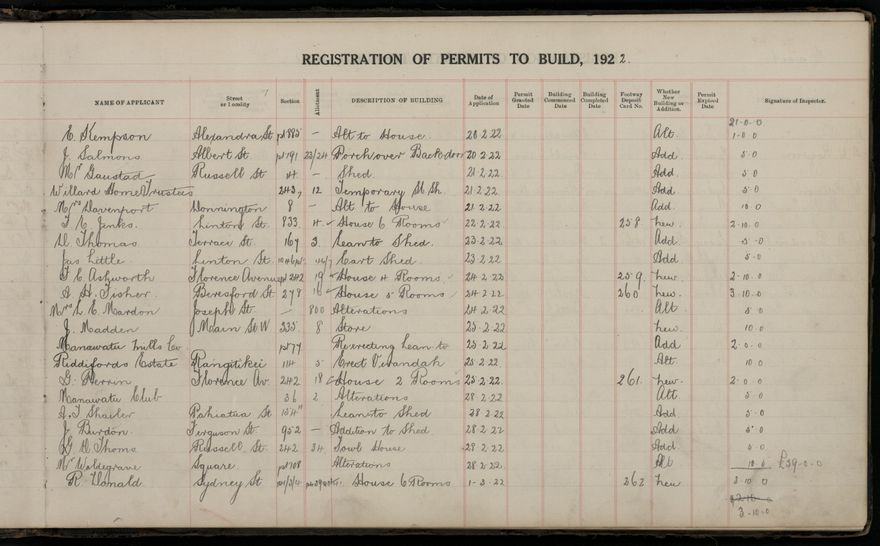 REGISTRATION OF PERMITS TO BUILD, 1922.
NAME OF APPLICANT Street or Locality Section Allotment DESCRIPTION OF BUILDING Date of Application Permit Granted Date Building Commenced Date Building Completed Date Footway Deposit Card No. Whether New Building or Addition. Permit Expired Date Signature of Inspector.
21-0-0
E. Kempson Alexandra St pt 885 — Alt to House. 20 2 22 Alt. 1-0 0
J. Salmons Albert St pt 791 23/24 Porch over Backdoor 20 2 22 Add. 5 0
Mr Gaustad Russell St — Shed. 21 2 22 Add. 5 0
Willard Home Trustees 243, 12 Temporary 21 2 22 Add 5 0
Mrs Davenport Donnington 8 — Alt to House 21 2 22 Add. 10 0
Jenks. Linton St. 833 4 House 6 Rooms 22 2 22 258 new. 2-10.0
Thomas Terrace St. 167 3 Leanto Shed. 23 2 22 Add. 5-0
Jas Little. Linton St. Cart Shed. 23 2 22 Add 5-0
Ashworth Florence Avenue pt 242 19 House 4 Rooms 24 2 22 259. new. 2-10-0
A. H. Fisher. Beresford St 279 House 5 Rooms 24 2 22 260 new. 3-10.0
Mrs L. E. Mardon Joseph St. — 800 Alterations 24 2 22 Alt. 5 0
J. Madden Main St W 335 8 Store 25-2 22 new. 10 0
Manawatu Mills Co pt 77 Re erecting Lean to 25 2 22 Add 2-0-0
Riddifords Estate Rangitikei 114 5 Erect Verandah 25 2 22 Alt. 10 0
G. Perrin Florence Av. 242 18 House 2 Rooms 25 2 22 261. new. 2-0 0
Manawatu Club 36 2 Alterations 28 2 22 Alt 5 0
Shailer Pahiatua St Leanto Shed 28 2 22 Add 5 0
J Burdon. Ferguson St. 952 — Addition to Shed 28 2 22 Add 5-0
Thoms Russell St. 242 34 Fowl House 28 2 22 Add 5 0
Mr Waldegrave Square pt 708 Alterations 28 2 22 Alt 10 0 £39-0-0
R. Honald. Sydney St House 6 Rooms 1-3-22 262 new 3 10 0
3-10-0